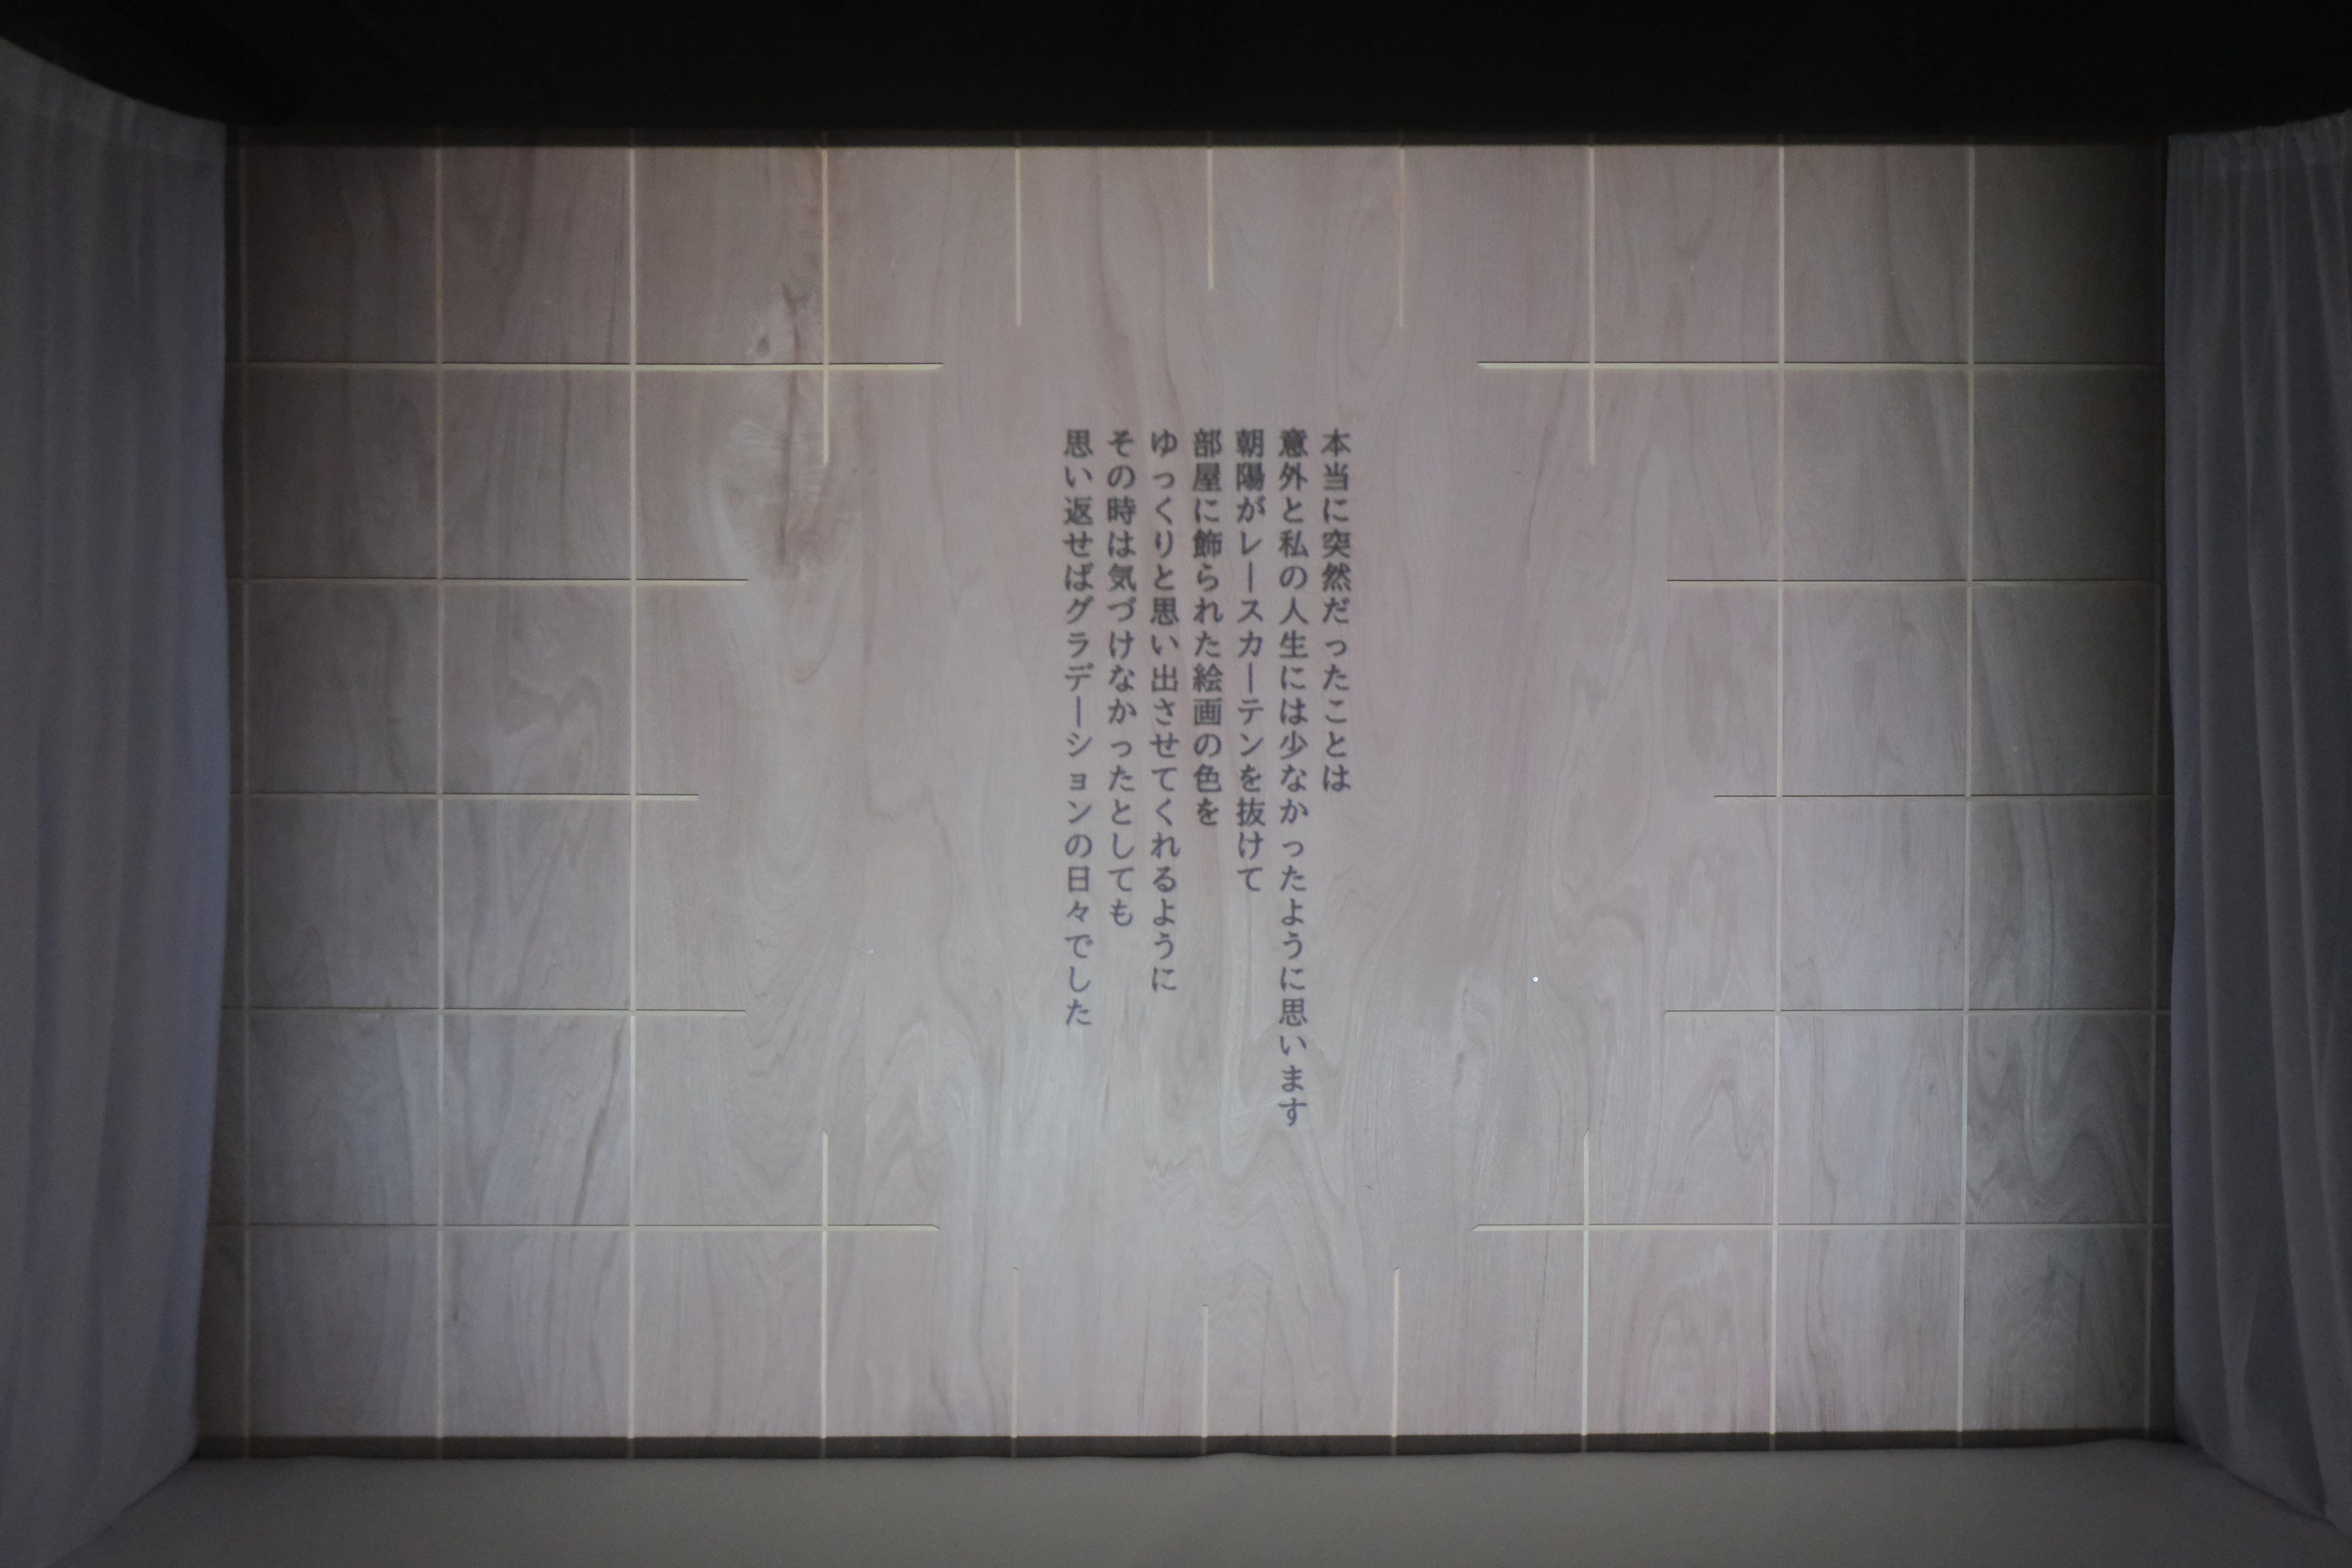 本当に突然だったことは
意外と私の人生には少なかったように思います
朝陽がレースカーテンを抜けて
部屋に飾られた絵画の色を
ゆっくりと思い出させてくれるように
その時は気づけなかったとしても
思い返せばグラデーションの日々でした